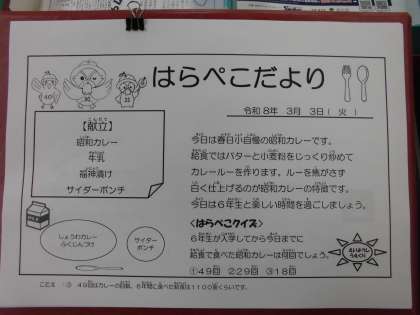 はらぺこだより
令和8年 3月 3日(火)
【献立】
昭和カレー
牛乳
福神漬け
サイダーポンチ
今日は春日小自慢の昭和カレーです。
給食ではバターと小麦粉をじっくり炒めて
カレールーを作ります。ルーを焦がさず
白く仕上げるのが昭和カレーの特徴です。
今日は6年生と楽しい時間を過ごしましょう。
<はらぺこクイズ>
6年生が入学してから今日までに
給食で食べた昭和カレーは何回でしょう。
①49回 ②29回 ③18回
しょうわカレー
ふくじんづけ
サイダー
ポンチ